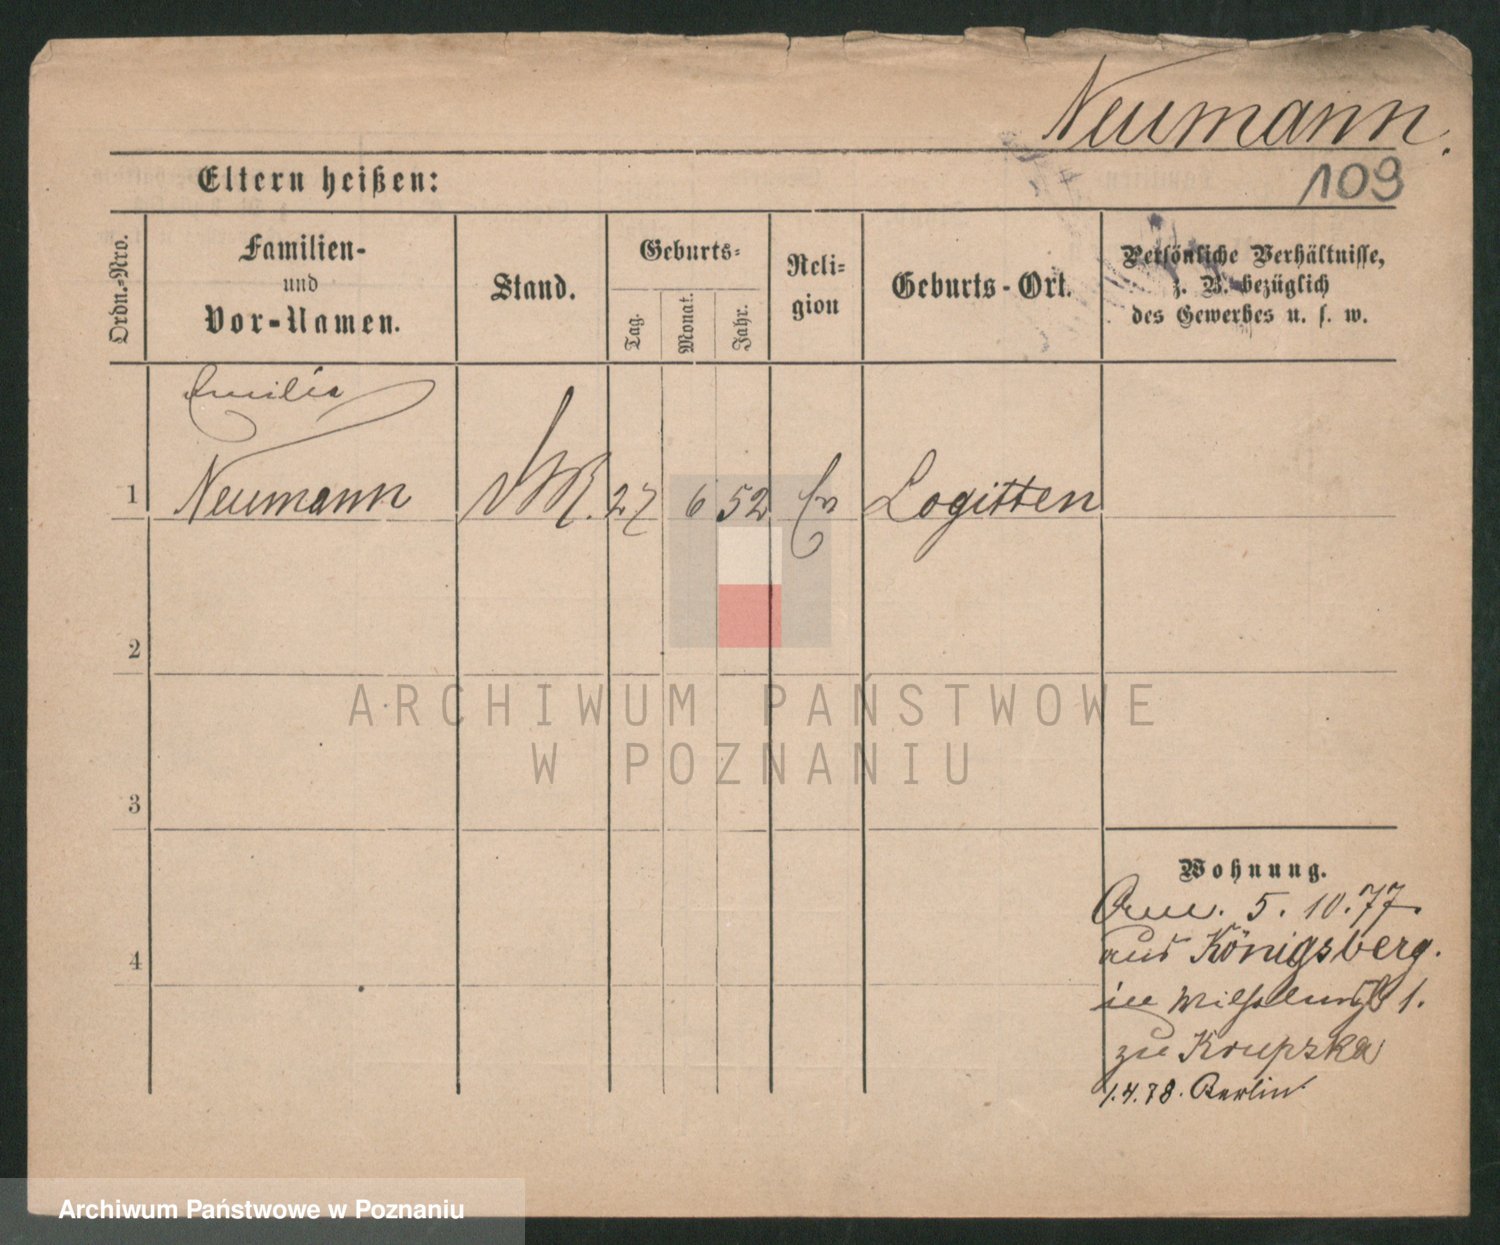 Neumann.
109
Eltern heißen:
Ordn.-Nro.
Familien-
und
Vor-Namen.
Stand.
Geburts-
Tag.
Monat.
Jahr.
Reli-
gion
Geburts-Ort.
Persönliche Verhältnisse,
z. B. bezüglich
des Gewerbes u. s. w.
Emilie
1 Neumann 27 6 52 Ev Logitten
2
3
4
Wohnung.
5. 10. 77.
aus Königsberg.
in 1.
zu Krupska
1.4.78. Berlin
ARCHIWUM PAŃSTWOWE
W POZNANIU
Archiwum Państwowe w Poznaniu